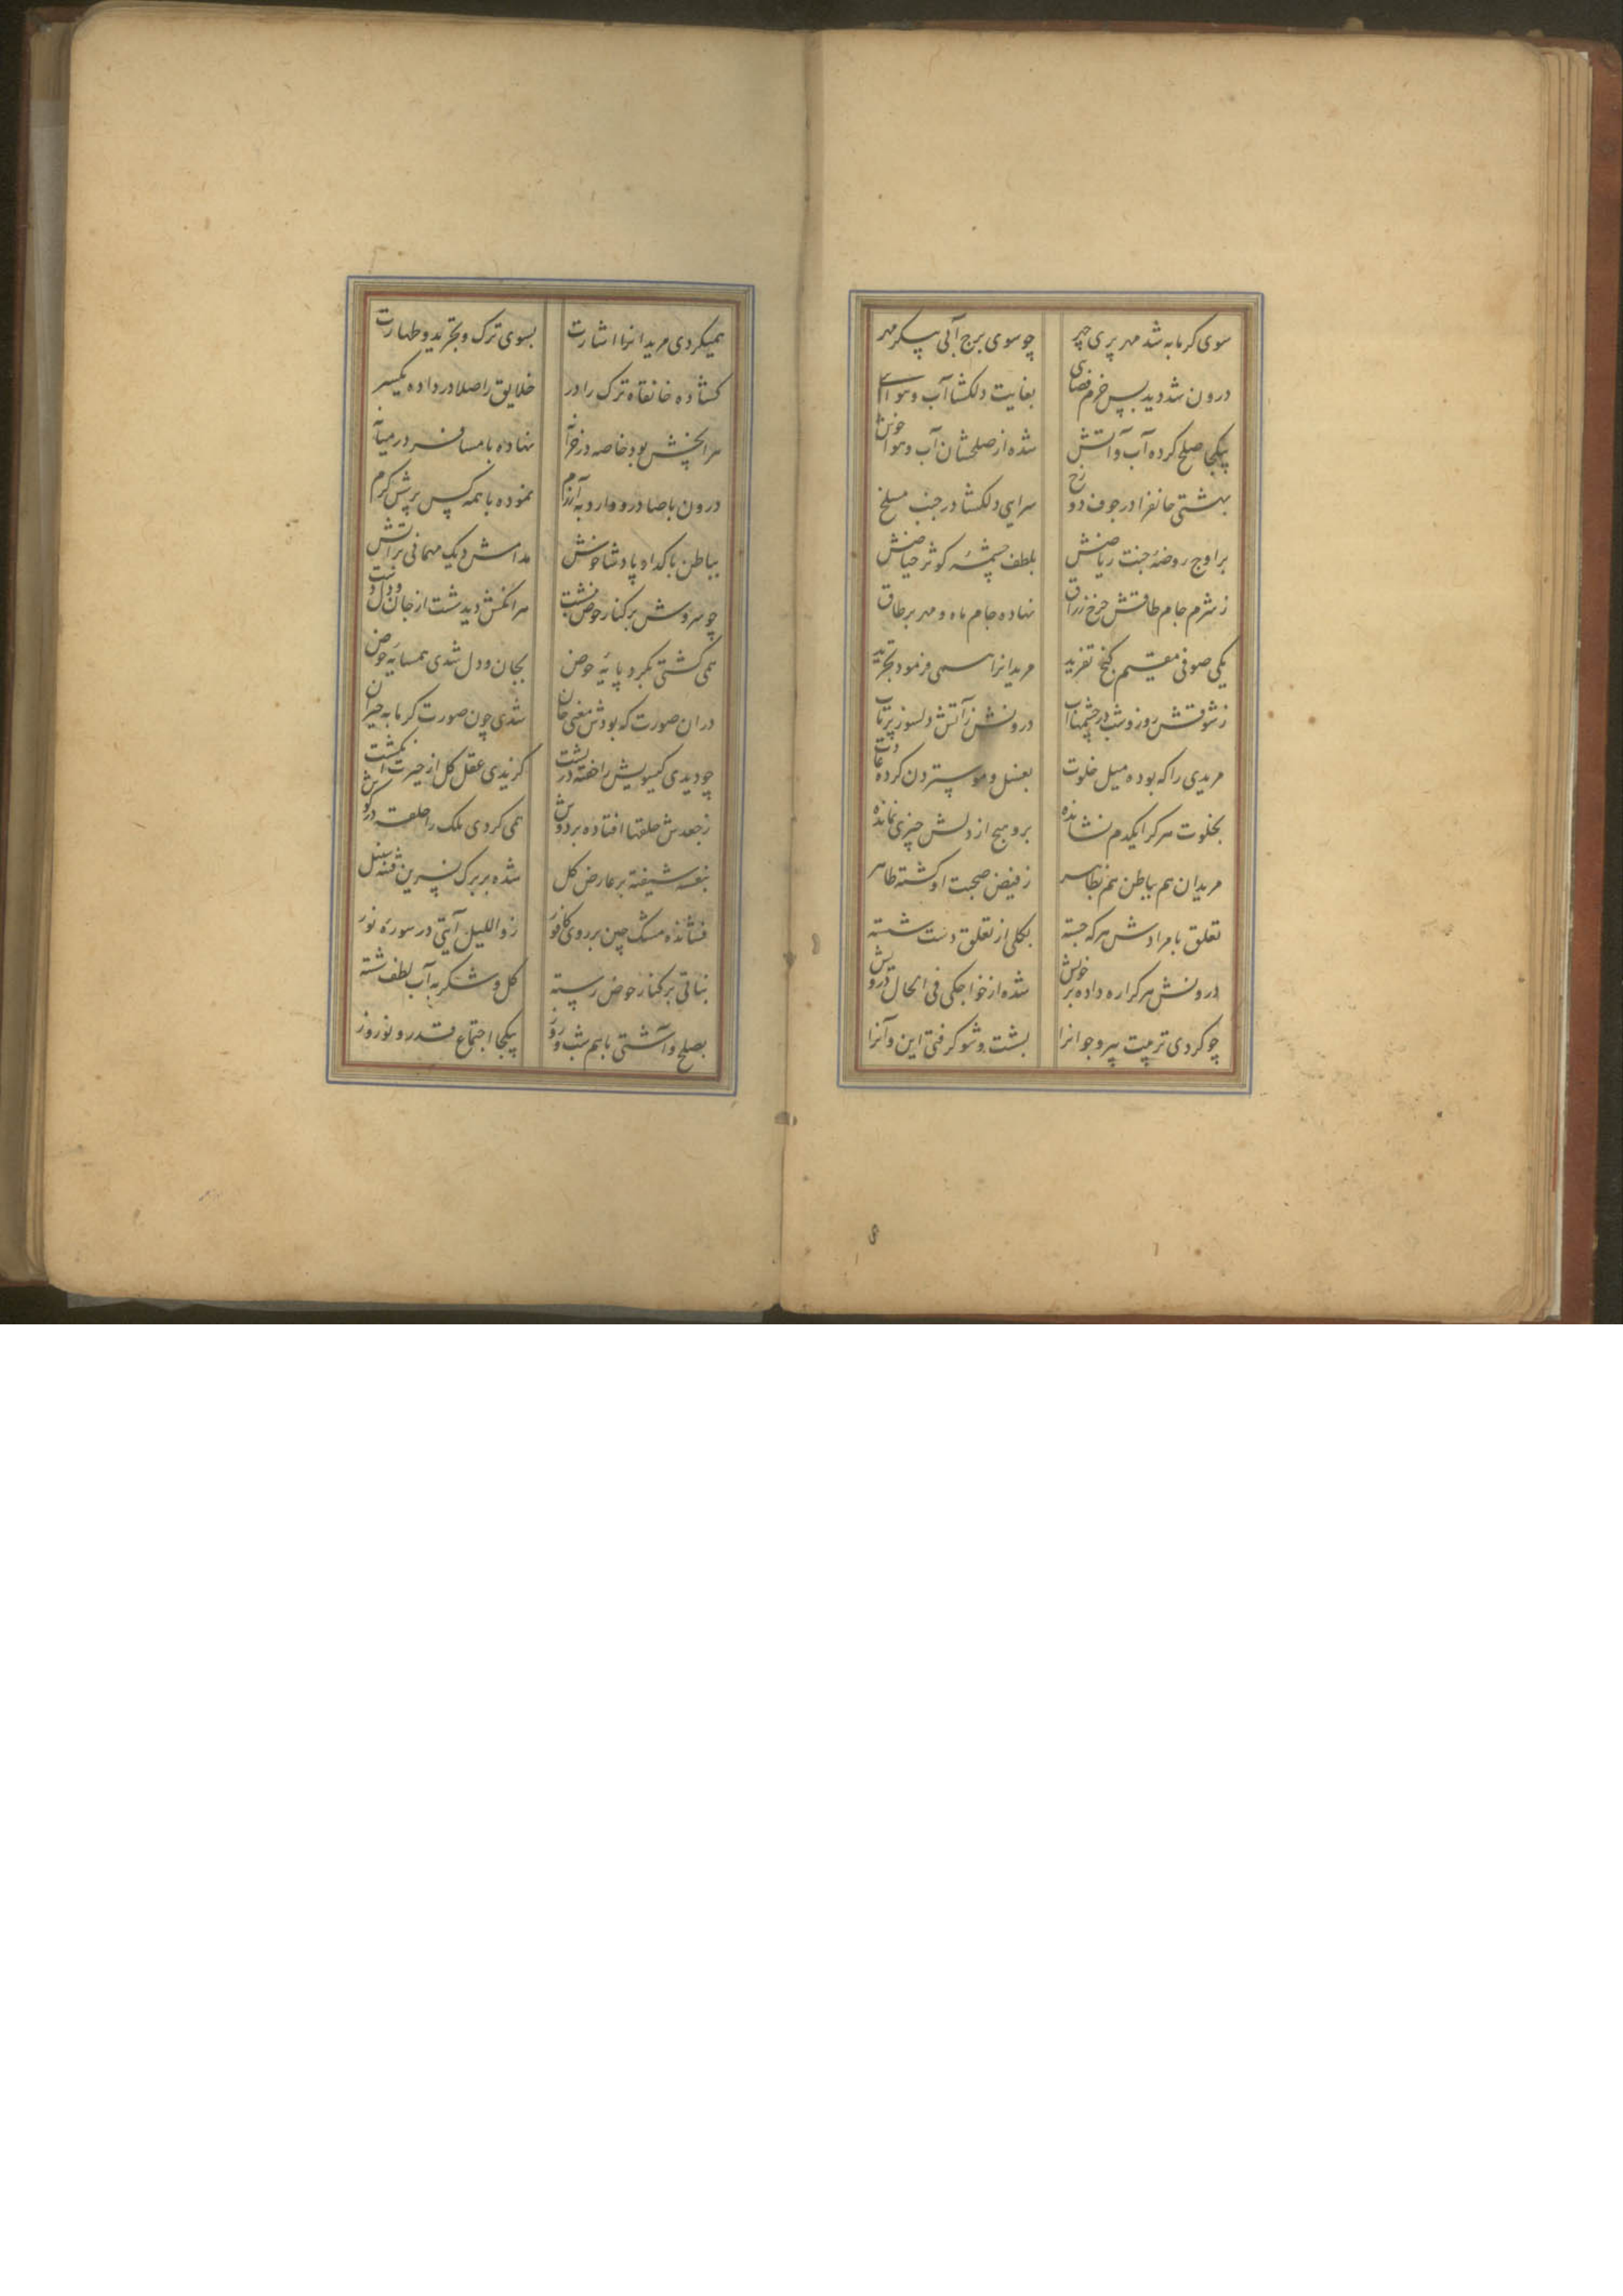 سوی کرمابه شد مهر پری چهر چو سوی برج آبی پیکر مهر
درون شد دید بس خرم فضای بغایت دلکشا آب و هوای
بیکجا صلح کرده آب و آتش شده از صلحشان آب و هوا خوش
بهشتی جانفزا در جوف دوزخ سرایی دلکشا در جنب مسلخ
بر اوج روضهٔ جنت ریاضش بلطف چشمهٔ کوثر حیاضش
ز شرم جام طاقش چرخ زراق نهاده جام ماه و مهر بر طاق
یکی صوفی مقیم کنج تفرید مریدانرا همی فرمود تجرید
ز شوقش روز و شب در چشمها آب درونش ز آتش دلسوز پرتاب
مریدی را که بوده میل خلوت بغسل و موستردن کرده عادت
بخلوت هرکرا یکدم نشانده برو هیچ از دلش چیزی نمانده
مریدان هم بباطن هم بظاهر ز فیض صحبت او کشته طاهر
تعلق با مرادش هرکه جسته بکلی از تعلق دست شسته
درونش هرکرا ره داده بر خویش شده از خواجکی فی الحال درویش
چو کردی تربیت پیر و جوانرا بشست و شو کرفتی این و آنرا
همیکردی مریدانرا اشارت بسوی ترک و تجرید و طهارت
کشاده خانقاه ترک را در خلایق را صلا در داده یکسر
هرانچش بود خاصه در خزانه نهاده با مسافر در میانه
درون با صادر و وارد به آزرم نموده با همه کس پرسش کرم
بباطن با کدا و پادشا خوش مدامش دیک مهمانی بر آتش
چو سروش بر کنار حوض بنشست هرانکش دید شست از جان و دل دست
همی کشتی بکرد پایهٔ حوض بجان و دل شدی همسایهٔ حوض
دران صورت که بودش معنی جان شدی چون صورت کرمابه حیران
چو دیدی کیسویش انداخته در پشت کزیدی عقل کل از حیرت انکشت
ز جعدش حلقها افتاده بر دوش همی کردی ملک را حلقه در کوش
بنفشه شیفته بر عارض کل شده بر برک نسرین فتنه سنبل
فشانده مشک چین بر روی کافور ز واللیل آیتی در سورهٔ نور
نباتی بر کنار حوض رسته کل و شکر به آب لطف شسته
بصلح و آشتی با هم شب و روز بیکجا اجتماع قدر و نوروز